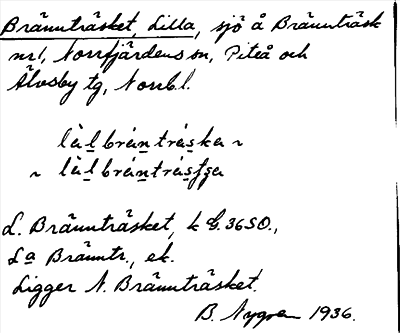 Brännträsket, Lilla, sjö å Brännträsk
nr 1, Norrfjärdens sn, Piteå och
Älvsby tg, Norrb. l.
làl brántráska ~
~ làl brántrásʃʃa
L. Brännträsket, k G. 36SO.,
La Bränntr., ek.
Ligger N. Brännträsket.
B. Nygren 1936.